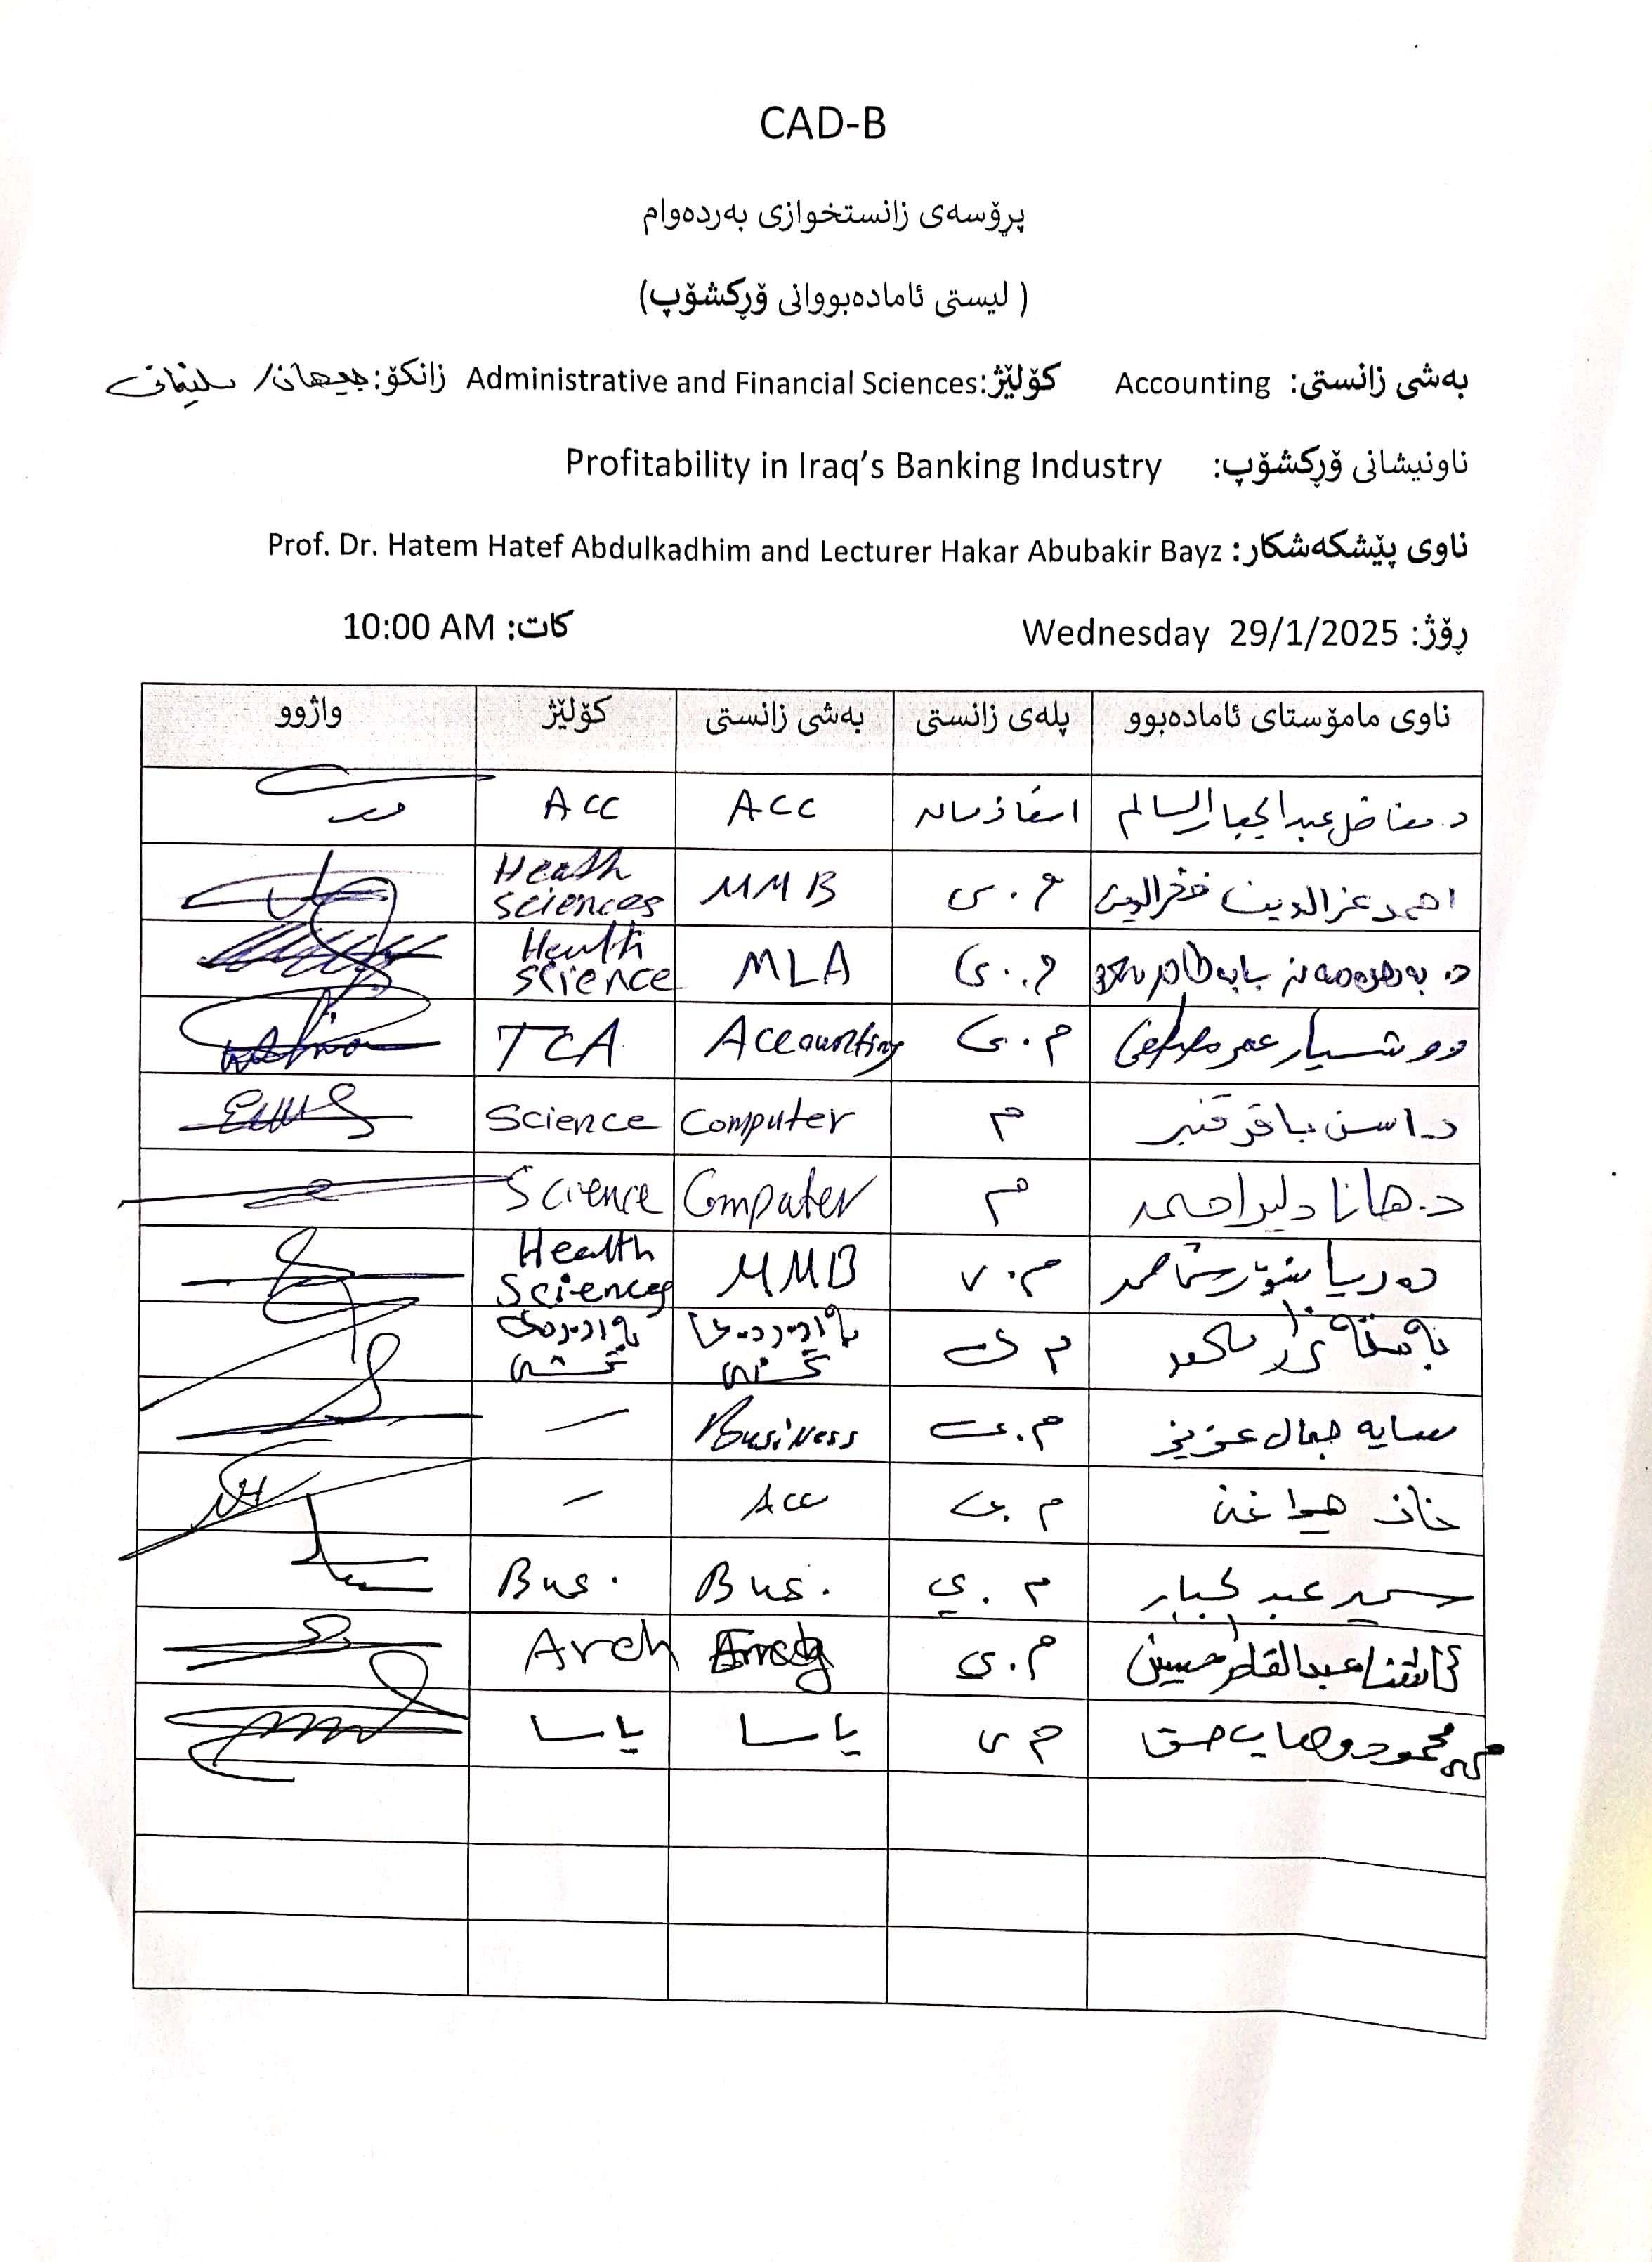 CAD-B
پڕۆسەی زانستخوازی بەردەوام
( لیستی ئامادەبووانی وۆرکشۆپ)
بەشی زانستی: Accounting كۆلێژ: Administrative and Financial Sciences زانكۆ: جیهان/ سلێمانی
ناونیشانی وۆرکشۆپ: Profitability in Iraq’s Banking Industry
ناوی پێشکەشکار: Prof. Dr. Hatem Hatef Abdulkadhim and Lecturer Hakar Abubakir Bayz
ڕۆژ: Wednesday 29/1/2025 كات: 10:00 AM
ناوی مامۆستای ئامادەبوو پلەی زانستی بەشی زانستی كۆلێژ واژوو
د. عبدالجبار السالم ACC ACC
احمد عزالدین فخرالدین م.ی MMB Health Sciences
م.ی MLA Health Science
عمر مصطفی م.ی Accounting TCA
د. باقر قنبر م Computer Science
د. هانا دلیر احمد م Computer Science
م.ی MMB Health Sciences
م ی
سایه جمال عزیز م.ی Business —
هیوا م.ی Acc —
عبد الجبار م.ي Bus. Bus.
عبدالقادر حسین م.ی Arch
محمود وهاب م ی یاسا یاسا